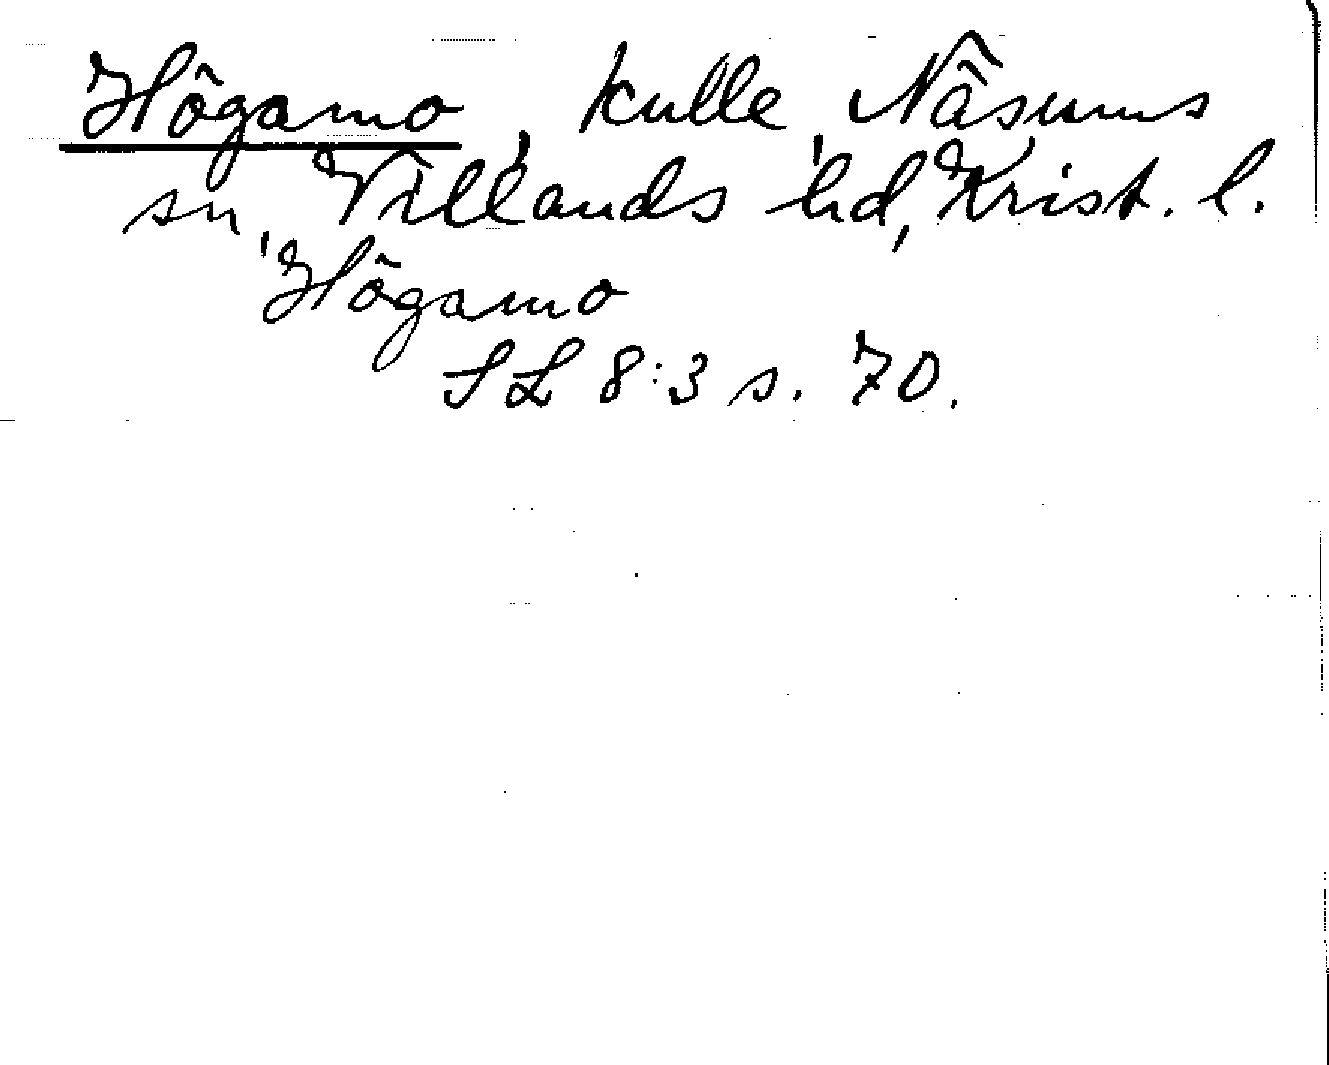 Högamo, kulle, Näsums
sn, Villands hd, Krist. l.
Högamo
SL 8:3 s. 70.